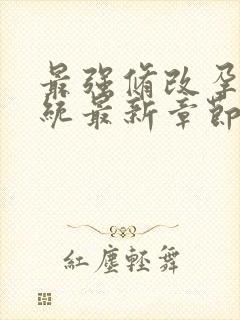 最强脩改孕
統最新章節
紅塵輕舞